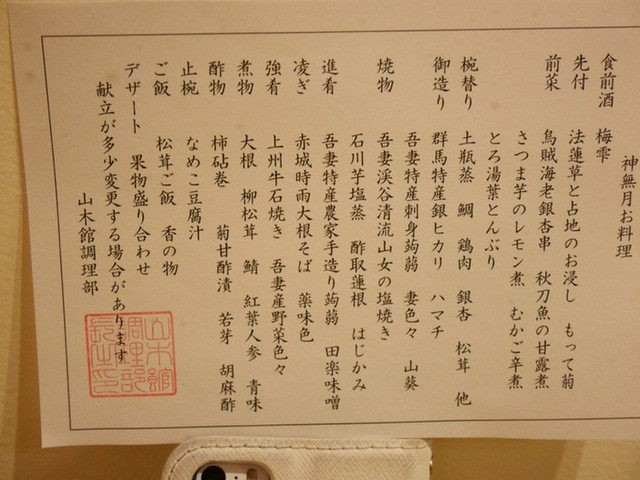 神無月お料理
食前酒　梅雫
先付　法蓮草と占地のお浸し　もって菊
前菜　烏賊海老銀杏串　秋刀魚の甘露煮
さつま芋のレモン煮　むかご辛煮
とろ湯葉とんぶり
椀替り　土瓶蒸　鯛　鶏肉　銀杏　松茸　他
御造り　群馬特産銀ヒカリ　ハマチ
吾妻特産刺身蒟蒻　妻色々　山葵
焼物　吾妻渓谷清流山女の塩焼き
石川芋塩蒸　酢取蓮根　はじかみ
進肴　吾妻特産農家手造り蒟蒻　田楽味噌
凌ぎ　赤城時雨大根そば　薬味色
強肴　上州牛石焼き　吾妻産野菜色々
煮物　大根　柳松茸　鯖　紅葉人参　青味
酢物　柿砧巻　菊甘酢漬　若芽　胡麻酢
止椀　なめこ豆腐汁
ご飯　松茸ご飯　香の物
デザート　果物盛り合わせ
献立が多少変更する場合があります
山木館調理部
山木館
調理部
長之印